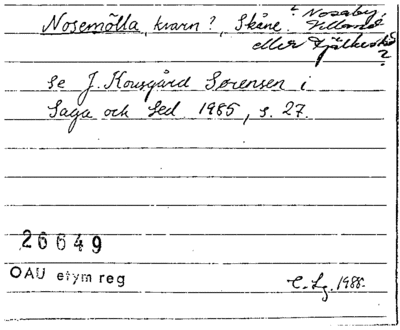 Nosemölla, kvarn?, Skåne. ? Nosaby, Villand
eller Fjälkestad ?
se J. Kousgård Sørensen i
Saga och Sed 1985, s. 27.
26649
OAU etym reg
C. Lg. 1988.